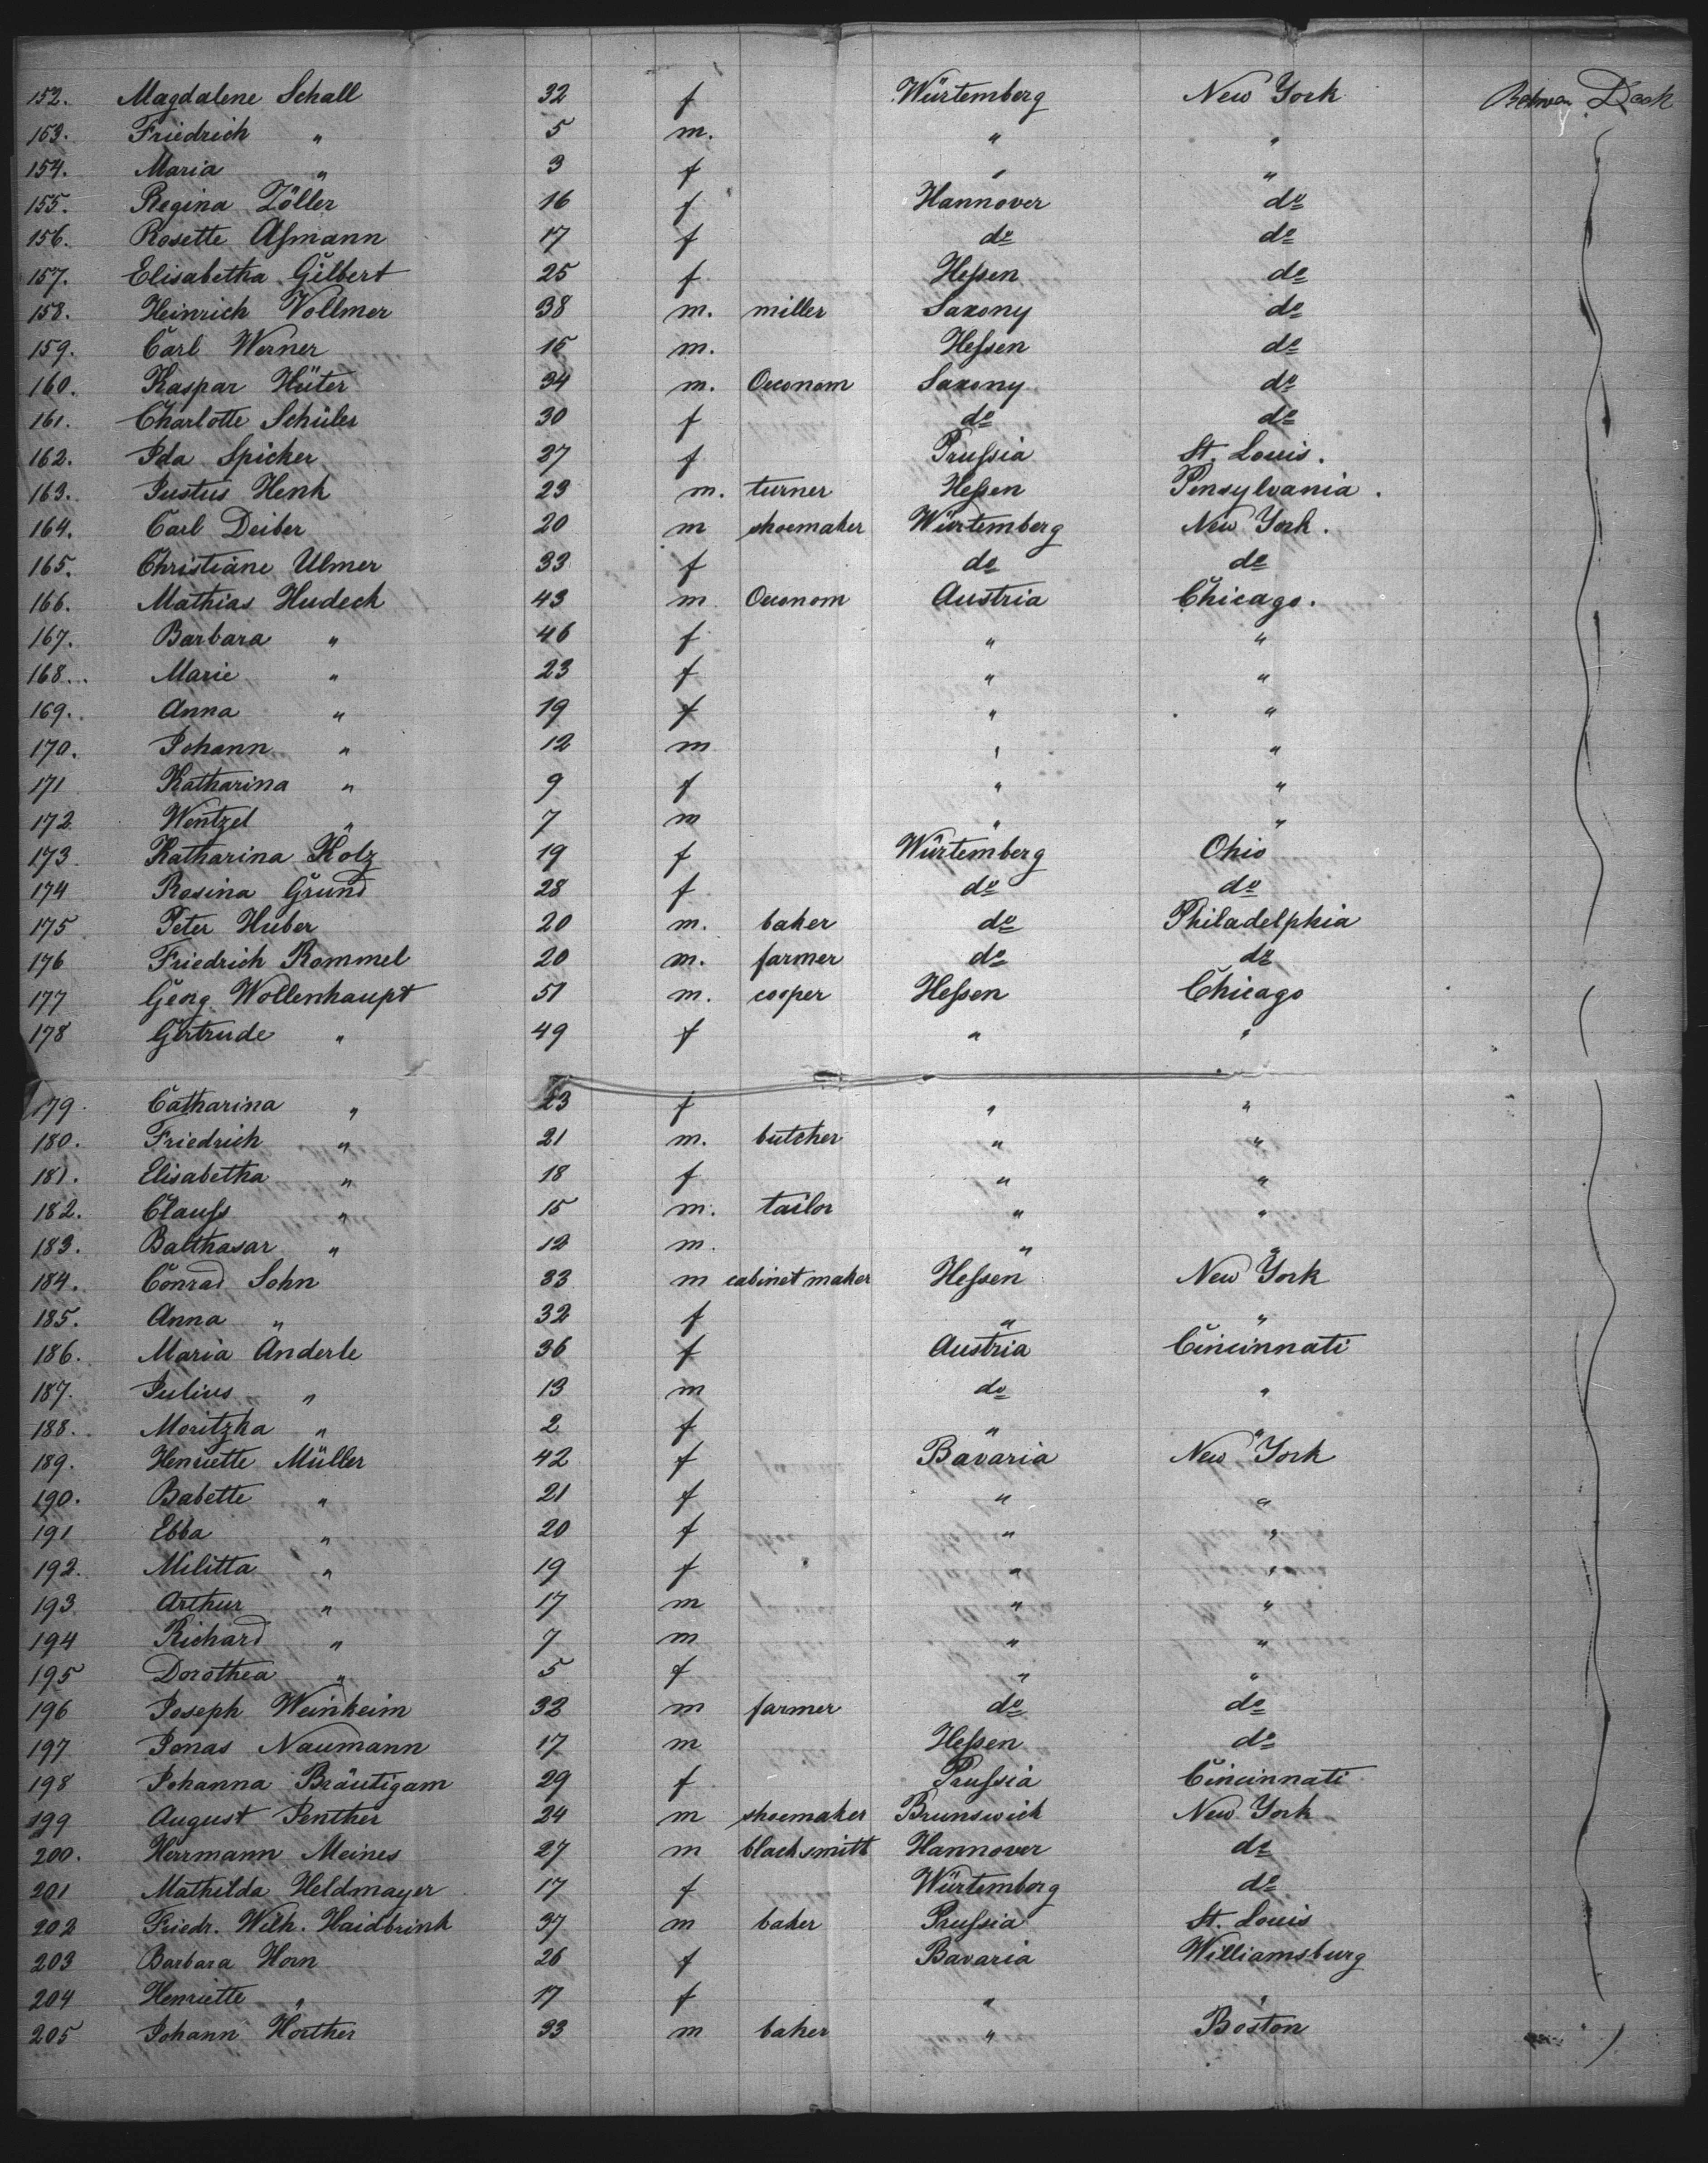 152. Magdalene Schall 32 f Würtemberg New York Betwen Deck
153. Friedrich " 5 m. " "
154. Maria " 3 f " "
155. Regina Zöller 16 f Hannover do
156. Rosette Aßmann 17 f do do
157. Elisabetha Gilbert 25 f Heßen do
158. Heinrich Vollmer 38 m. miller Saxony do
159. Carl Werner 15 m. Heßen do
160. Kaspar Hüter 34 m. Oeconom Saxony do
161. Charlotte Schüler 30 f do do
162. Ida Spicker 27 f Prußia St. Louis.
163. Justus Henk 23 m. turner Heßen Pensylvania.
164. Carl Deiber 20 m shoemaker Würtemberg New York.
165. Christiane Ulmer 33 f do do
166. Mathias Hudeck 43 m Oeconom Austria Chicago.
167. Barbara " 46 f " "
168. Marie " 23 f " "
169. Anna " 19 f " "
170. Johann " 12 m " "
171 Katharina " 9 f " "
172 Wentzel " 7 m " "
173 Katharina Kolz 19 f Würtemberg Ohio
174 Rosina Grund 28 f do do
175 Peter Huber 20 m. baker do Philadelphia
176 Friedrich Rommel 20 m. farmer do do
177 Georg Wollenhaupt 51 m. cooper Heßen Chicago
178 Gertrude " 49 f " "
179. Catharina " 23 f " "
180. Friedrich " 21 m. butcher " "
181. Elisabetha " 18 f " "
182. Clauß " 15 m. tailor " "
183. Balthasar " 12 m. " "
184. Conrad Sohn 33 m cabinet maker Heßen New York
185. Anna " 32 f " "
186. Maria Anderle 36 f Austria Cincinnati
187. Julius " 13 m do "
188. Moritzka " 2 f " "
189. Henriette Müller 42 f Bavaria New York
190. Babette " 21 f " "
191 Ebba " 20 f " "
192. Militta " 19 f " "
193 Arthur " 17 m " "
194 Richard " 7 m " "
195 Dorothea " 5 f " "
196 Joseph Weinheim 32 m farmer do do
197 Jonas Naumann 17 m Heßen do
198 Johanna Bräutigam 29 f Prußia Cincinnati
199 August Penther 24 m shoemaker Brunswick New York
200. Herrmann Meines 27 m blacksmitt Hannover do
201 Mathilda Heldmayer 17 f Würtemberg do
202 Friedr. Wilh. Haidbrink 37 m baker Prußia St. Louis
203 Barbara Horn 26 f Bavaria Williamsburg
204 Henriette " 17 f " "
205 Johann Horther 33 m baker " Boston